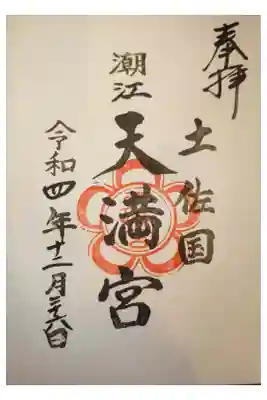 奉拝
土佐国
潮江
天満宮
令和四年十二月二十六日